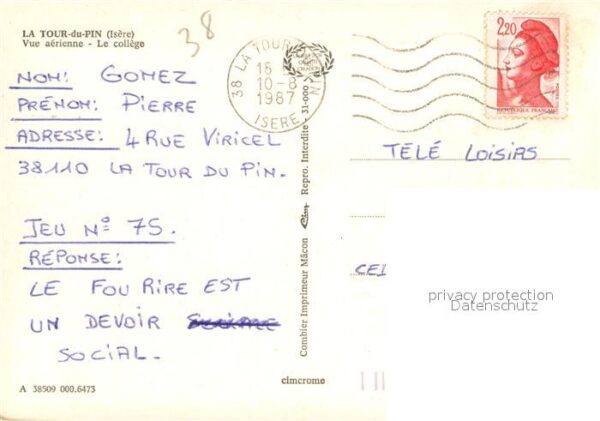 LA TOUR-du-PIN (Isère)
Vue aérienne - Le collège
38
NOM: GOMEZ
PRÉNOM: PIERRE
ADRESSE: 4 RUE VIRICEL
38110 LA TOUR DU PIN.
JEU N° 75.
RÉPONSE:
LE FOU RIRE EST
UN DEVOIR
SOCIAL.
A 38509 000.6473
cimcrome
Combier Imprimeur Mâcon Cim Repro. Interdite - 31-000
38 LA TOUR
10-8
1987
ISERE
2,20
REPUBLIQUE FRANÇAISE
TÉLÉ LOISIRS
CE
privacy protection
Datenschutz